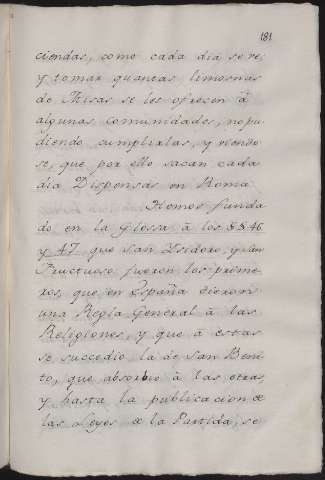 181
ciendas, como cada dia se ve,
y tomar quantas limosnas
de Missas se les ofrecen à
algunas comunidades, no pu
diendo cumplirlas, y viendo
se, que por ello sacan cada
dia Dispensas en Roma
Hemos funda
do en la glossa à los §§ 46
y 47 que San Isidoro, y San
Fructuoso fueron los prime
ros, que en España dieron
una Regla General à las
Religiones, y que à estas
se succedio la de San Beni
to, que absorbio à las otras,
y hasta la publicacion de
las Leyes de la Partida, se